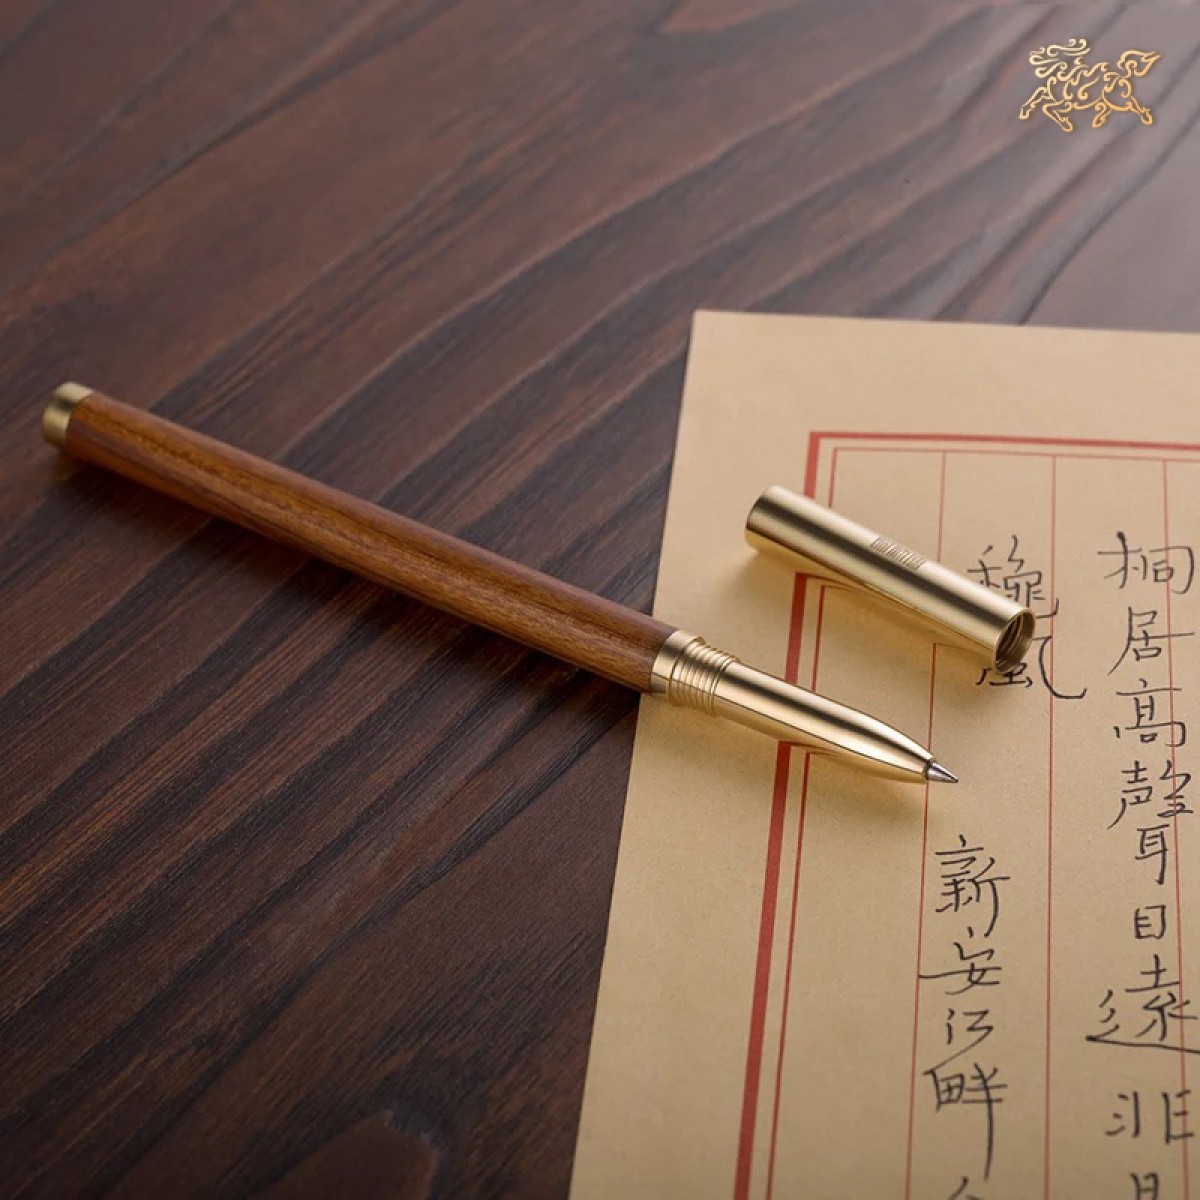 桐居高聲自遠非
風
新安江畔